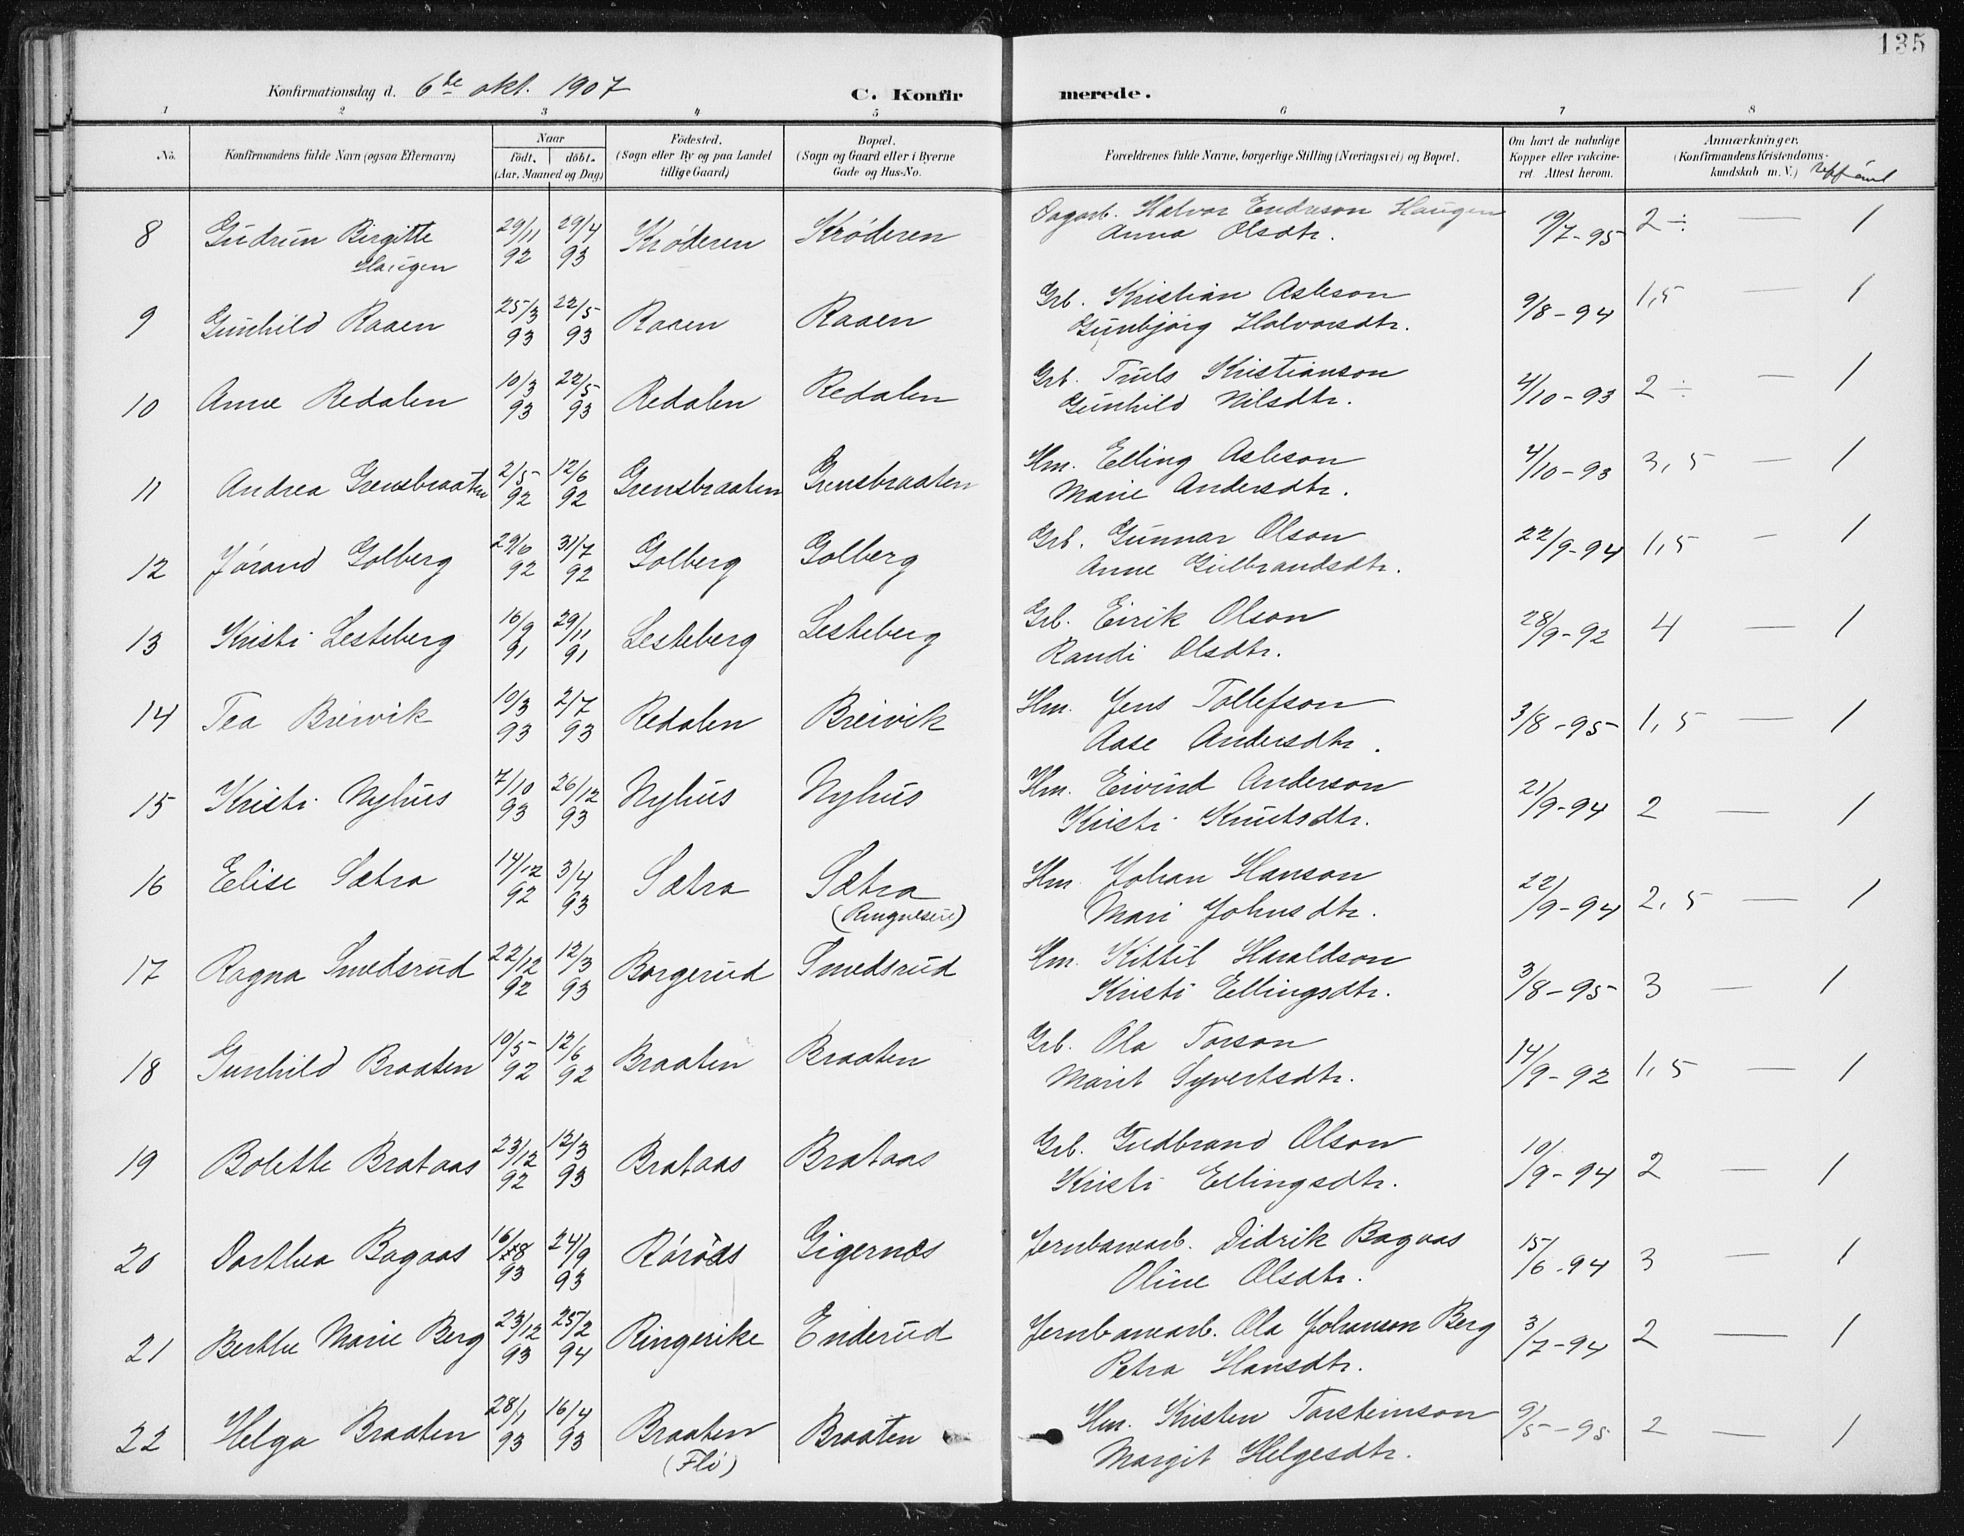 135
Konfirmationsdag d. 6te okt. 1907 C. Konfirmerede.
1 2 3 4 5 6 7 8
No. Konfirmandens fulde Navn (ogsaa Efternavn) Naar født. døbt. (Aar, Maaned og Dag) Fødested. (Sogn eller By og paa Landet tillige Gaard) Bopæl. (Sogn og Gaard eller i Byerne Gade og Hus-No. Forældrenes fulde Navne, borgerlige Stilling (Næringsvei) og Bopæl. Om havt de naturlige Kopper eller vakcineret. Attest herom. Anmærkninger. (Konfirmandens Kristendomskundskab m. V.)
8 Gudrun Birgitte Haugen 29/11 92 29/4 93 Krøderen Krøderen Dagarb. Halvor Endreson Haugen 19/7-95 2 ÷ — 1
Anna Olsdtr.
9 Gunhild Raaen 25/3 93 22/5 93 Raaen Raaen Grb. Kristian Asleson 9/8-94 1,5 — 1
Gunbjørg Halvorsdtr.
10 Anne Redalen 10/3 93 22/5 93 Redalen Redalen Grb. Truls Kristianson 4/10-93 2 ÷ — 1
Gunhild Nilsdtr.
11 Andrea Grensbraaten 2/5 92 12/6 92 Grensbraaten Grensbraaten Hm. Elling Asleson 4/10-93 3,5 — 1
Marie Andersdtr.
12 Jørand Golberg 29/6 92 31/7 92 Golberg Golberg Grb. Gunnar Olson 22/9-94 1,5 — 1
Anne Gulbrandsdtr.
13 Kristi Lesteberg 16/9 91 29/11 91 Lesteberg Lesteberg Grb. Eirik Olson 28/9-92 4 — 1
Randi Olsdtr.
14 Tea Breivik 19/3 93 2/7 93 Redalen Breivik Hm. Jens Tollefson 3/8-95 1,5 — 1
Aase Andersdtr.
15 Kristi Nyhus 7/10 93 26/12 93 Nyhus Nyhus Hm. Eivind Anderson 21/9-94 2 — 1
Kristi Knutsdtr.
16 Elise Sætra 14/12 92 3/4 93 Sætra Sætra Hm. Johan Hanson 22/9-94 2,5 — 1
Mari Johnsdtr.
17 Ragna Smedsrud 22/12 92 12/3 93 Borgerud Smedsrud Hm. Kittil Haraldson 3/8-95 3 — 1
Kristi Ellingsdtr.
18 Gunhild Braaten 10/5 92 12/6 92 Braaten Braaten Grb. Ola Torson 14/9-92 1,5 — 1
Marit Syvertsdtr.
19 Bolette Brataas 23/12 92 12/3 93 Brataas Brataas Grb. Gudbrand Olson 10/9-94 2 — 1
Kristi Ellingsdtr.
20 Dorthea Bagaas 16/8 93 24/9 93 Rørøs Gigernes Jernbanearb. Didrik Bagaas 15/6-94 3 — 1
Oline Olsdtr.
21 Berthe Marie Berg 23/12 93 25/2 94 Ringerike Enderud Jernbanearb. Ola Johansen Berg 3/7-94 2 — 1
Petra Hansdtr.
22 Helga Braaten 28/1 93 16/4 93 Braaten (Flø) Braaten Hm. Kristen Torsteinson 9/5-95 2 — 1
Margit Helgesdtr.